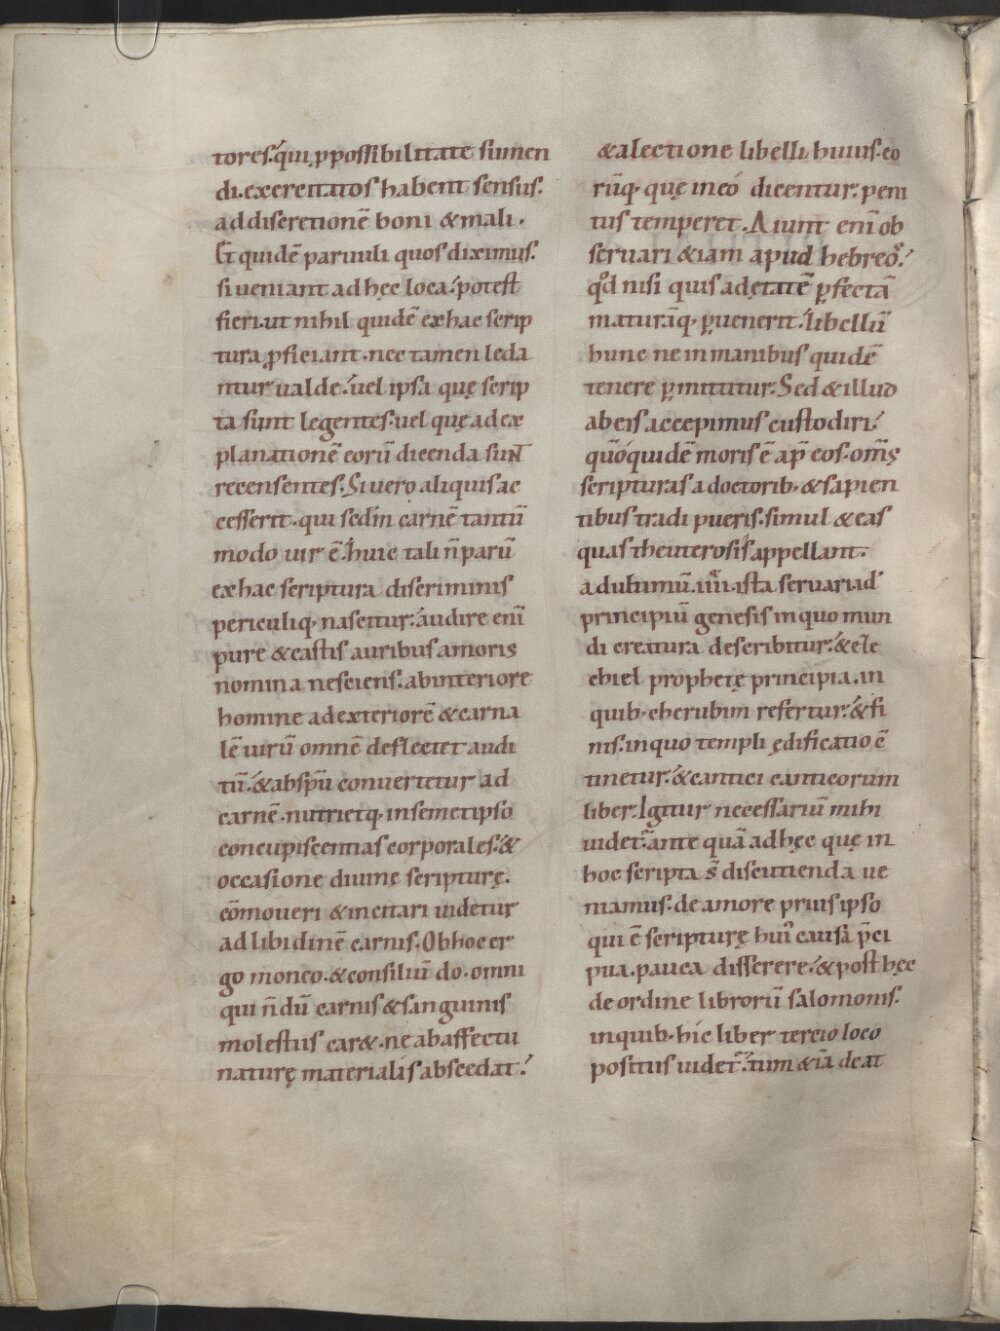 tores. qui ꝓ possibilitate sumen
di. exercitatos habent sensus.
ad discretionē boni & mali.
Et quidē paruuli quos diximus.
si ueniant ad hęc loca. potest
fieri. ut nihil quidē ex hac scrip
tura ꝓficiant. nec tamen leda
ntur ualde. uel ipsa quę scrip
ta sunt legentes. uel quę ad ex
planationē eorū dicenda sunt
recensentes. Si uero aliquis ac
cesserit. qui sedm̄ carnē tantū
modo uir ē. huic tali n̄ parū
ex hac scriptura discriminis
periculiq; nascitur. audire enī
pure & castis auribus amoris
nomina nesciens. ab interiore
homine ad exteriorē & carna
lē uirū omnē deflectet audi
tū. & ab sp̄u conuertetur ad
carnē. nutrietq; in semetipso
concupiscentias corporales. &
occasione diuinę scripturę.
cōmoueri & incitari uidetur
ad libidinē carnis. Ob hoc er
go moneo. & consiliū do. omni
qui n̄dū carnis & sanguinis
molestiis car&. ne ab affectu
naturę materialis abscedat.
& a lectione libelli huius. eo
rūq; quę in eo dicentur. peni
tus temperet. Aiunt enī ob
seruari &iam apud hebreos.
qd̄ nisi quis ad ętatē ꝑfectā
maturāq; ꝑuenerit. libellū
hunc ne in manibus quidē
tenere ꝑmittitur. Sed & illud
ab eis accepimus custodiri.
quō quidē moris ē ap̄ eos. om̄s
scripturas a doctorib; & sapien
tibus tradi pueris. simul & eas
quas theuterosis appellant.
ad ultimū. iiii. ista seruari id
principiū genesis in quo mun
di creatura describitur. & eze
chiel prophetę principia. in
quib; cherubim refertur. & fi
nis. in quo templi ędificatio cō
tinetur. & cantici canticorum
liber. Igitur necessariū mihi
uidet̄. ante quā ad hęc quę in
hoc scripta s̄ discutienda ue
niamus. de amore prius ipso
qui ē scripturę hui' causa p̄ci
pua. pauca disserere. & post hęc
de ordine librorū salomonis.
in quib; hic liber tercio loco
positus uidet̄. tum & iā de at